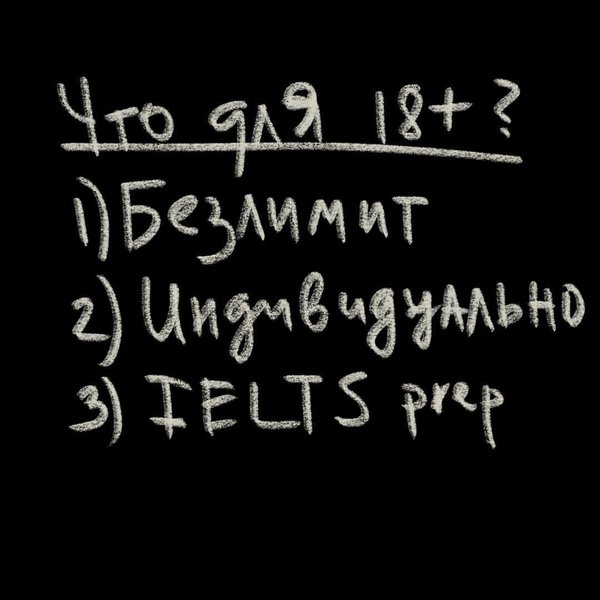 Что для 18+?
1) Безлимит
2) Индивидуально
3) IELTS prep